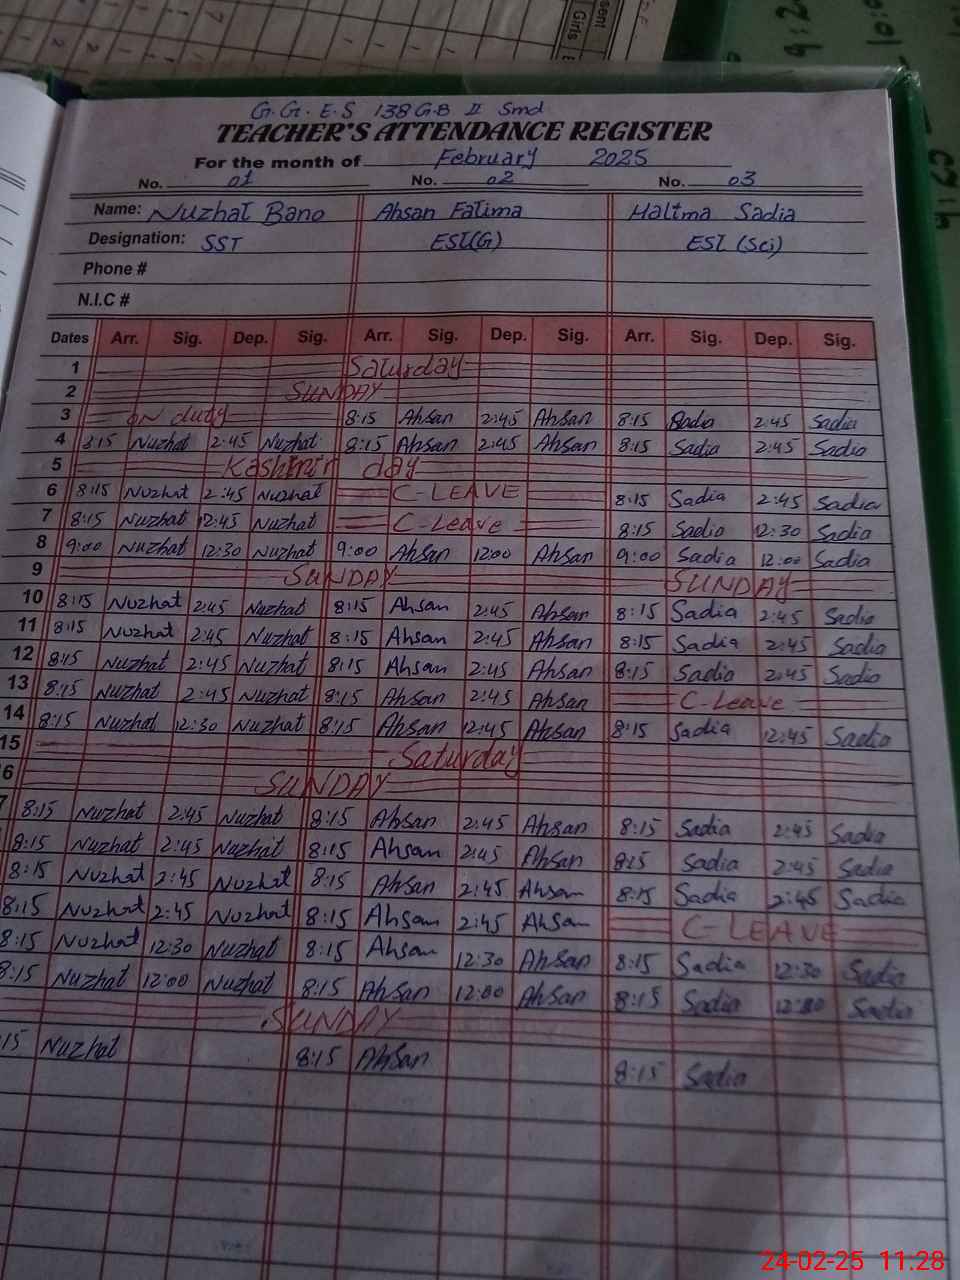 sent
Girls
G.G.E.S 138 G.B II Smd
TEACHER'S ATTENDANCE REGISTER
For the month of February 2025
No. 01 No. 02 No. 03
Name: Nuzhat Bano Ahsan Fatima Halima Sadia
Designation: SST EST(G) EST (Sci)
Phone #
N.I.C #
Dates Arr. Sig. Dep. Sig. Arr. Sig. Dep. Sig. Arr. Sig. Dep. Sig.
1 Saturday
2 SUNDAY
3 on duty 8:15 Ahsan 2:45 Ahsan 8:15 Sadia 2:45 Sadia
4 8:15 Nuzhat 2:45 Nuzhat 8:15 Ahsan 2:45 Ahsan 8:15 Sadia 2:45 Sadia
5 Kashmir day
6 8:15 Nuzhat 2:45 Nuzhat C-LEAVE 8:15 Sadia 2:45 Sadia
7 8:15 Nuzhat 12:45 Nuzhat C-Leave 8:15 Sadia 12:30 Sadia
8 9:00 Nuzhat 12:30 Nuzhat 9:00 Ahsan 12:00 Ahsan 9:00 Sadia 12:00 Sadia
9 SUNDAY SUNDAY
10 8:15 Nuzhat 2:45 Nuzhat 8:15 Ahsan 2:45 Ahsan 8:15 Sadia 2:45 Sadia
11 8:15 Nuzhat 2:45 Nuzhat 8:15 Ahsan 2:45 Ahsan 8:15 Sadia 2:45 Sadia
12 8:15 Nuzhat 2:45 Nuzhat 8:15 Ahsan 2:45 Ahsan 8:15 Sadia 2:45 Sadia
13 8:15 Nuzhat 2:45 Nuzhat 8:15 Ahsan 2:45 Ahsan C-Leave
14 8:15 Nuzhat 12:30 Nuzhat 8:15 Ahsan 12:45 Ahsan 8:15 Sadia 12:45 Sadia
15 Saturday
6 SUNDAY
7 8:15 Nuzhat 2:45 Nuzhat 8:15 Ahsan 2:45 Ahsan 8:15 Sadia 2:45 Sadia
8:15 Nuzhat 2:45 Nuzhat 8:15 Ahsan 2:45 Ahsan 8:15 Sadia 2:45 Sadia
8:15 Nuzhat 2:45 Nuzhat 8:15 Ahsan 2:45 Ahsan 8:15 Sadia 2:45 Sadia
8:15 Nuzhat 2:45 Nuzhat 8:15 Ahsan 2:45 Ahsan C-LEAVE
8:15 Nuzhat 12:30 Nuzhat 8:15 Ahsan 12:30 Ahsan 8:15 Sadia 12:30 Sadia
8:15 Nuzhat 12:00 Nuzhat 8:15 Ahsan 12:00 Ahsan 8:15 Sadia 12:00 Sadia
SUNDAY
:15 Nuzhat 8:15 Ahsan 8:15 Sadia
24-02-25 11.28